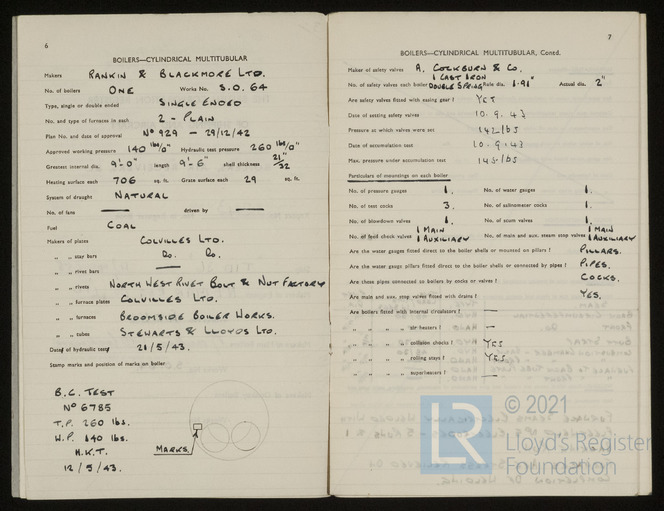 6
BOILERS—CYLINDRICAL MULTITUBULAR
Makers RANKIN & BLACKMORE LTD.
No. of boilers ONE Works No. S.O. 64
Type, single or double ended SINGLE ENDED
No. and type of furnaces in each 2 - PLAIN
Plan No. and date of approval No 929 - 29/12/42
Approved working pressure 140 lbs/□" Hydraulic test pressure 260 lbs/□"
Greatest internal dia. 9'-0" length 9'-6" shell thickness 21/32
Heating surface each 706 sq. ft. Grate surface each 29 sq. ft.
System of draught NATURAL
No. of fans — driven by —
Fuel COAL
Makers of plates COLVILLES LTD.
" " stay bars Do. Do.
" " rivet bars —
" " rivets NORTH WEST RIVET BOLT & NUT FACTORY
" " furnace plates COLVILLES LTD.
" " furnaces BROOMSIDE BOILER WORKS.
" " tubes STEWARTS & LLOYDS LTD.
Date of hydraulic test 21/5/43.
Stamp marks and position of marks on boiler
B.C. TEST
No 6785
T.P. 260 lbs.
W.P. 140 lbs.
H.K.T.
12/5/43.
MARKS.
7
BOILERS—CYLINDRICAL MULTITUBULAR, Contd.
Maker of safety valves A. COCKBURN & Co.
No. of safety valves each boiler 1 CAST IRON DOUBLE SPRING Rule dia. 1.91" Actual dia. 2"
Are safety valves fitted with easing gear? YES
Date of setting safety valves 10.9.43
Pressure at which valves were set 142 lbs
Date of accumulation test 10.9.43
Max. pressure under accumulation test 145 lbs
Particulars of mountings on each boiler
No. of pressure gauges 1. No. of water gauges 1.
No. of test cocks 3. No. of salinometer cocks 1.
No. of blowdown valves 1. No. of scum valves 1.
No. of feed check valves 1 MAIN 1 AUXILIARY No. of main and aux. steam stop valves 1 MAIN 1 AUXILIARY
Are the water gauges fitted direct to the boiler shells or mounted on pillars? PILLARS.
Are the water gauge pillars fitted direct to the boiler shells or connected by pipes? PIPES.
Are these pipes connected to boilers by cocks or valves? COCKS.
Are main and aux. stop valves fitted with drains? YES.
Are boilers fitted with internal circulators? —
" " " " air heaters? —
" " " " collision chocks? YES
" " " " rolling stays? YES
" " " " superheaters? —
© 2021
Lloyd's Register
Foundation
LR